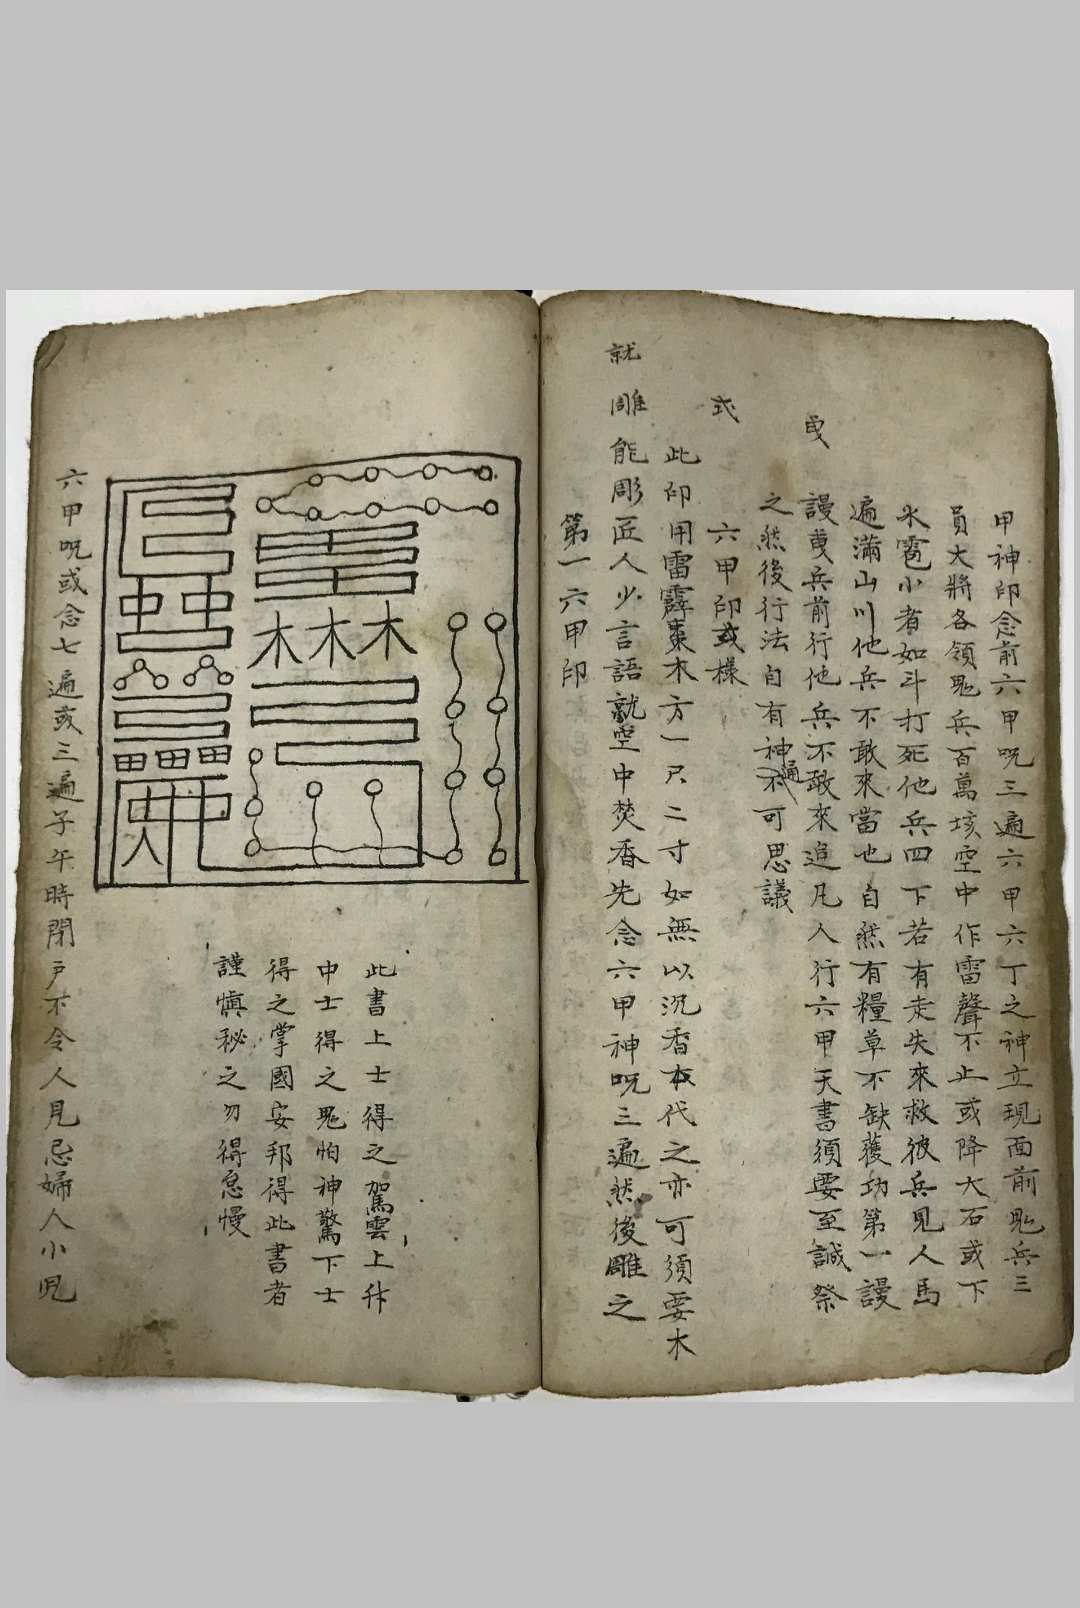 甲神印念前六甲咒三遍六甲六丁之神立現面前鬼兵三
員大將各領鬼兵百萬垓空中作雷聲不止或降大石或下
氷雹小者如斗打死他兵四下若有走失來救彼兵見人馬
遍滿山川他兵不敢來當也自然有糧草不缺獲功第一謾
謾曳兵前行他兵不敢來追凡人行六甲天書須要至誠祭
曳
之然後行法自有神通不可思議
六甲印式樣
式
此印用雷霹棗木方一尺二寸如無以沉香木代之亦可須要木
就雕能彫匠人少言語就空中焚香先念六甲神咒三遍然後雕之
第一六甲印
木木木
此書上士得之駕雲上升
中士得之鬼怕神驚下士
得之掌國安邦得此書者
謹慎秘之勿得怠慢
六甲咒或念七遍或三遍子午時閉戶不令人見忌婦人小児